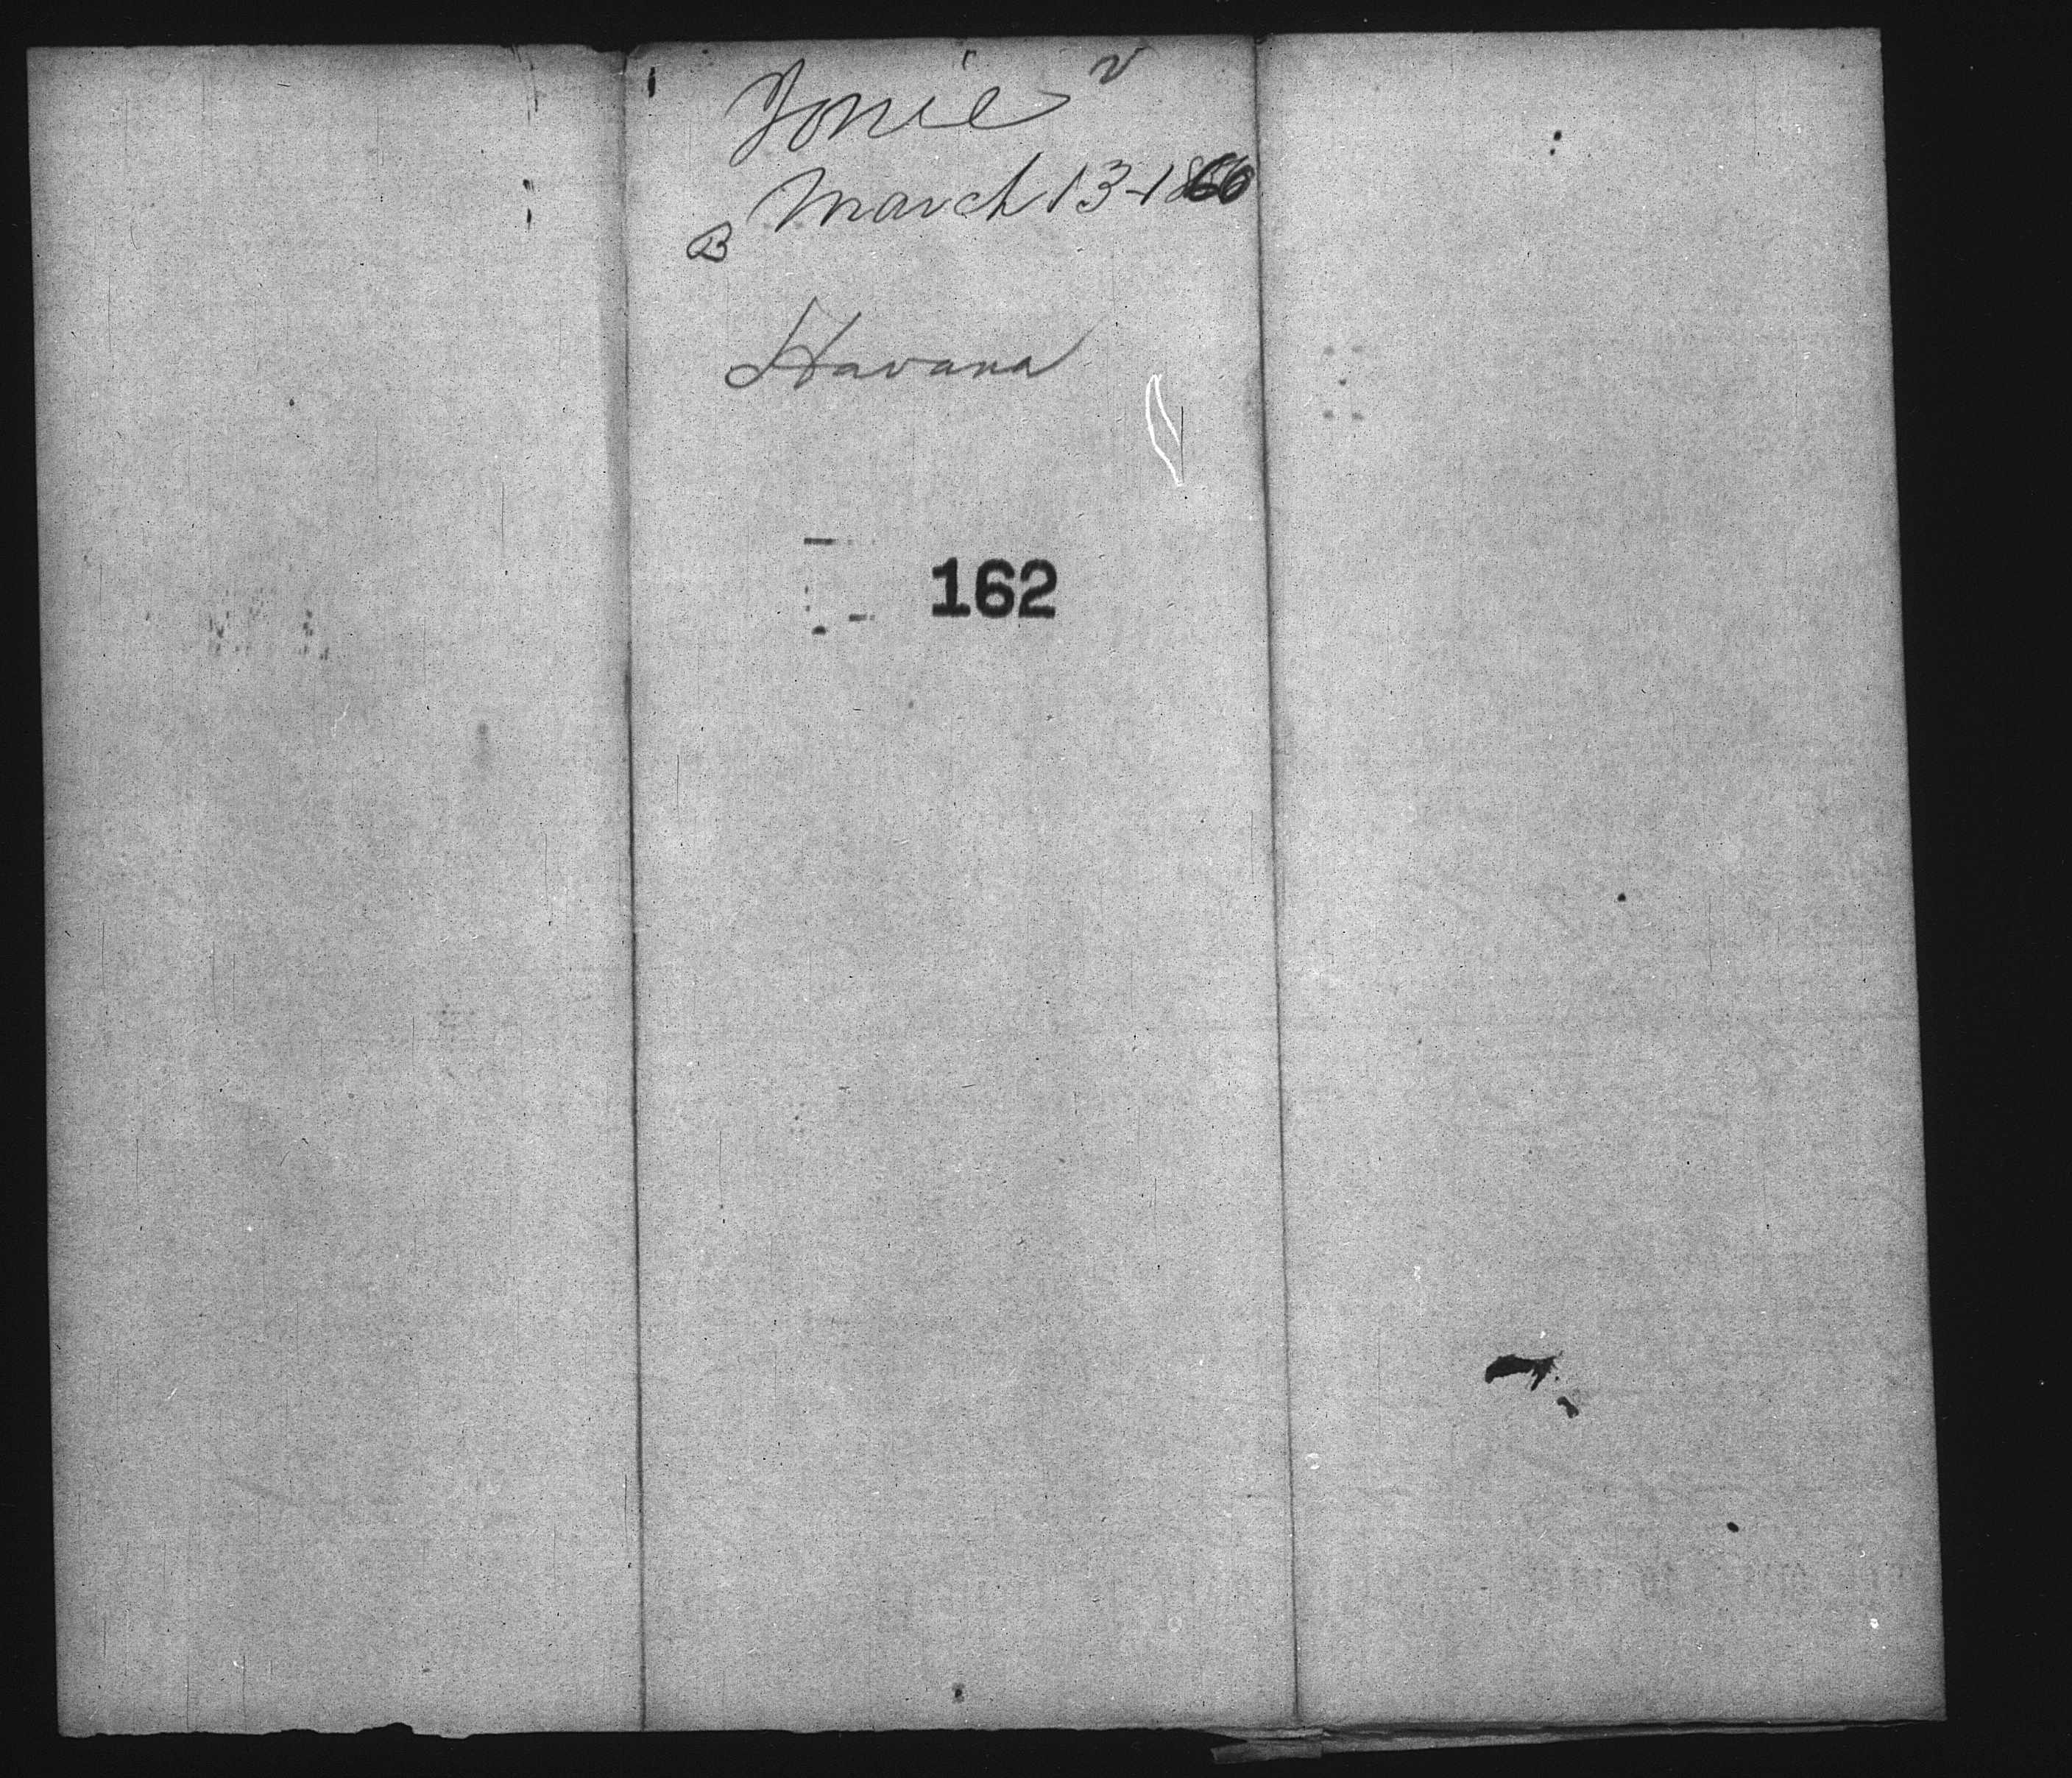 Jonie
March 13-1866
B
Havana
162